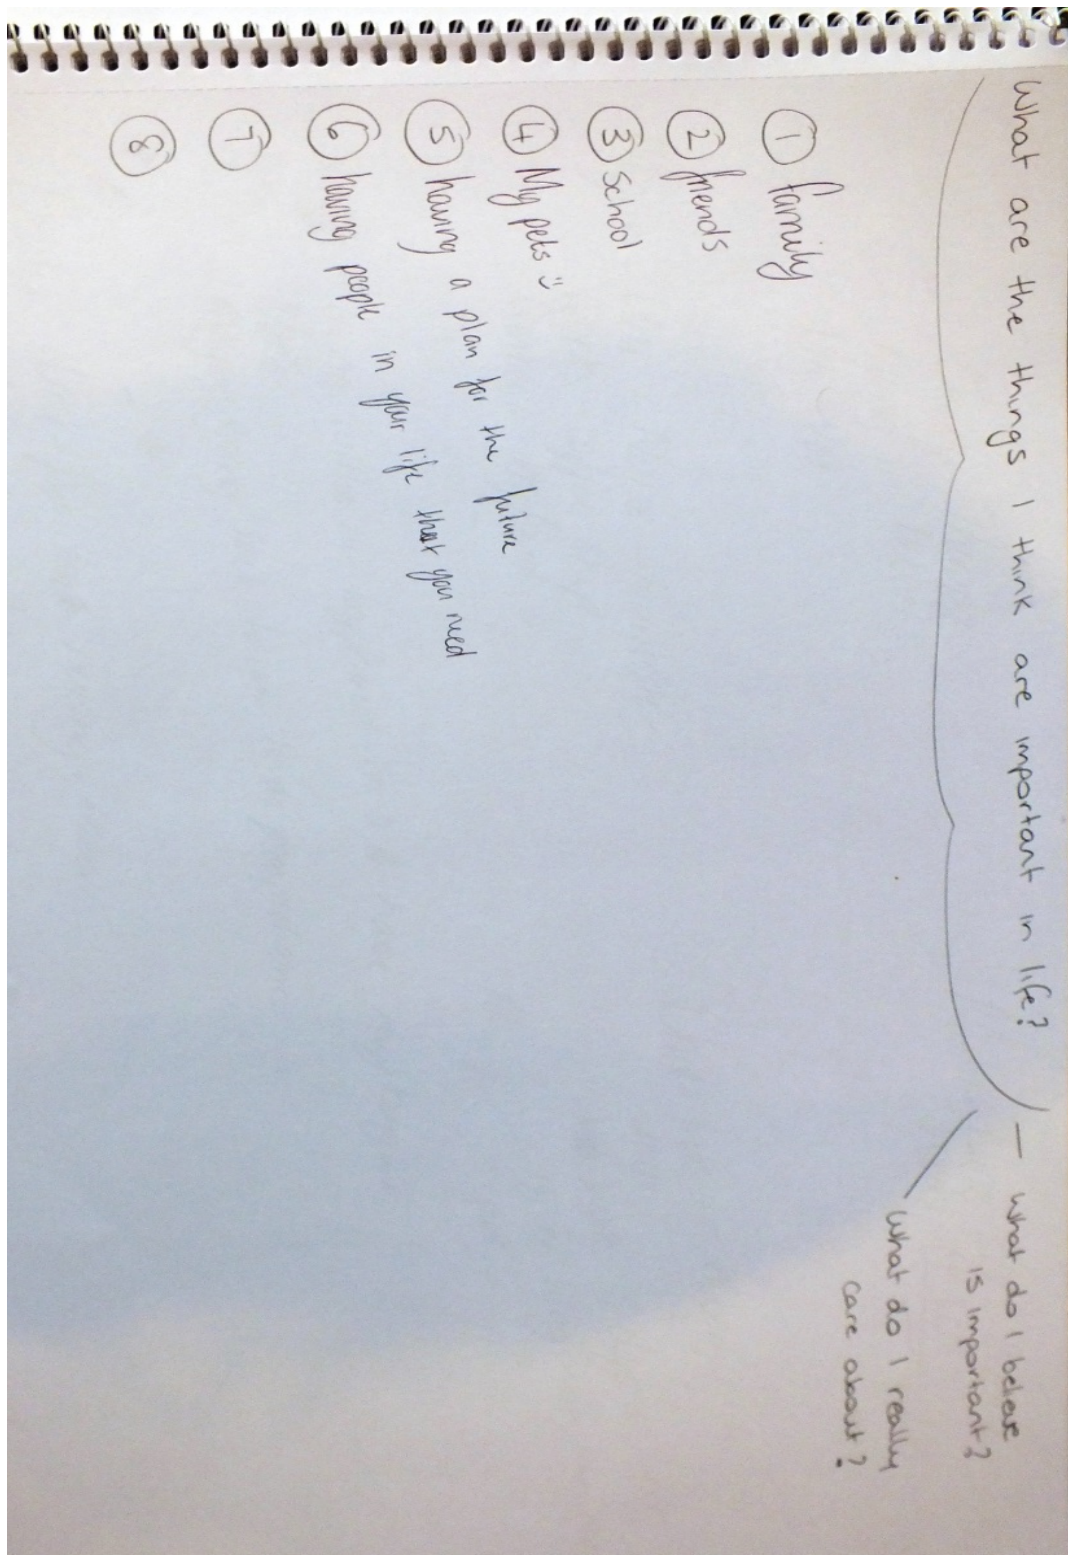 What are the things I think are important in life? — What do I believe
is important?
What do I really
care about?
① family
② friends
③ school
④ My pets :)
⑤ having a plan for the future
⑥ having people in your life that you need
⑦
⑧